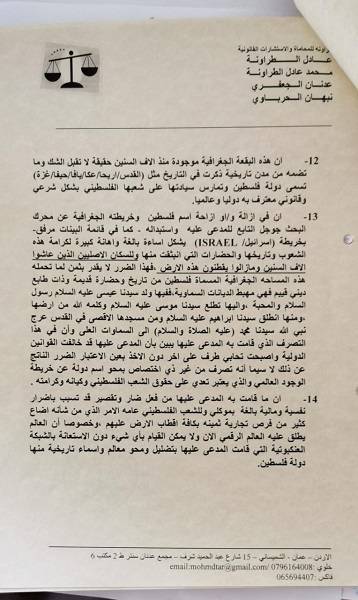 راونه للمحاماة والاستشارات القانونية
عادل الطراونة
محمد عادل الطراونة
عدنان الجعفري
نبهان الحرباوي
12- ان هذه البقعة الجغرافية موجودة منذ الاف السنين حقيقة لا تقبل الشك وما
تضمه من مدن تاريخية ذكرت في التاريخ مثل (القدس/اريحا/عكا/يافا/حيفا/غزة)
تسمى دولة فلسطين وتمارس سيادتها على شعبها الفلسطيني بشكل شرعي
وقانوني معترف به دوليا وعالميا.
13- ان في ازالة و/او ازاحة اسم فلسطين وخريطته الجغرافية عن محرك
البحث جوجل التابع للمدعى عليه واستبداله . كما في قائمة البينات مرفق-
بخريطة (اسرائيل/ ISRAEL) يشكل اساءة بالغة واهانة كبيرة لكرامة هذه
الشعوب وتاريخها والحضارات التي انبثقت منها وللسكان الاصليين الذين عاشوا
الاف السنين ومازالوا يقطنون هذه الارض ,فهذا الضرر لا يقدر بثمن لما تحمله
هذه المساحه الجغرافية المسماة فلسطين من تاريخ وحضارة قديمة وذات طابع
ديني قيم فهي مهبط الديانات السماوية.ففيها ولد سيدنا عيسى عليه السلام رسول
السلام والمحبة ,واليها تطلع سيدنا موسى عليه السلام وكلمه الله من ارضها
,ومنها انطلق سيدنا ابراهيم عليه السلام ومن مسجدها الاقصى في القدس عرج
نبي الله سيدنا محمد (عليه الصلاة والسلام) الى السماوات العلى وأن في هذا
التصرف الذي قامت به المدعى عليها يبين بأن المدعى عليها قد خالفت القوانين
الدولية واصبحت تحابي طرف على اخر دون الاخذ بعين الاعتبار الضرر الناتج
عن ذلك لا سيما أنه تصرف من غير ذي اختصاص بمحو اسم دولة عن خريطة
الوجود العالمي والذي يعتبر تعدي على حقوق الشعب الفلسطيني وكيانه وكرامته .
14- ان ما قامت به المدعى عليها من فعل ضار وتقصير قد تسبب باضرار
نفسية ومالية بالغة بموكلي وللشعب الفلسطيني عامه الامر الذي من شأنه اضاع
كثير من فرص تجارية ثمينه بكافة اقطاب الارض عليهم ,وخصوصا أن العالم
يطلق عليه العالم الرقمي الان ولا يمكن القيام بأي شيء دون الاستعانة بالشبكة
العنكبوتية التي قامت المدعى عليها بتضليل ومحو معالم واسماء تاريخية منها
دولة فلسطين.
الاردن – عمان - الشميساني – 15 شارع عبد الحميد شرف – مجمع عدنان سنتر ط 2 مكتب 6
خلوي :0796164008 /email:mohmdtar@gmail.com
فاكس :065694407